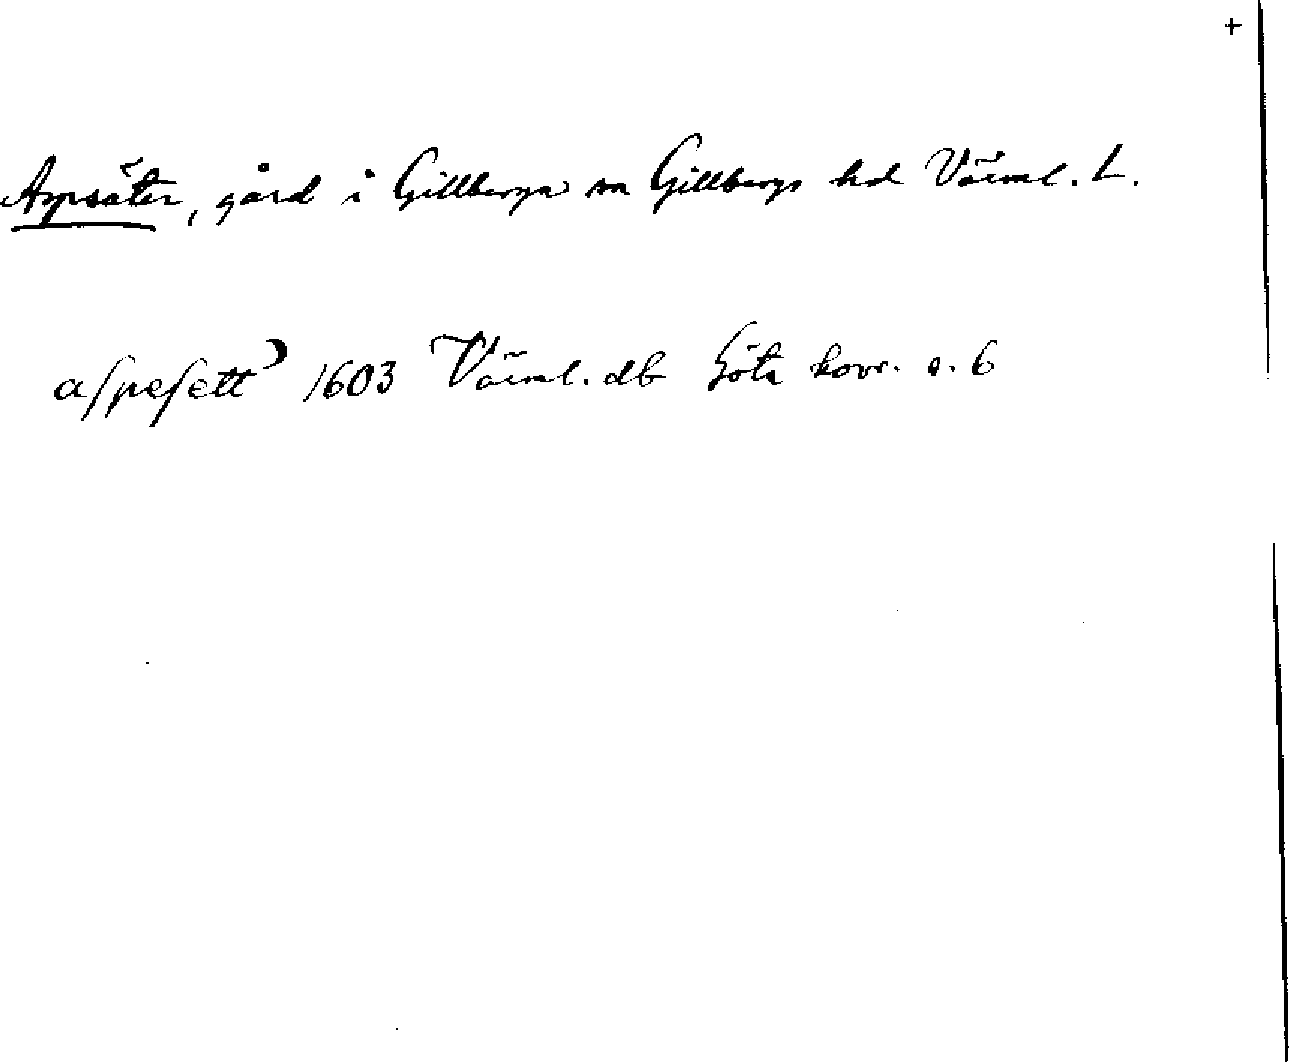 +
Aspsäter, gård i Gillberga sn Gillbergs hd Värml. L.
aspesett? 1603 Värml. db Göta hovr. s. 6